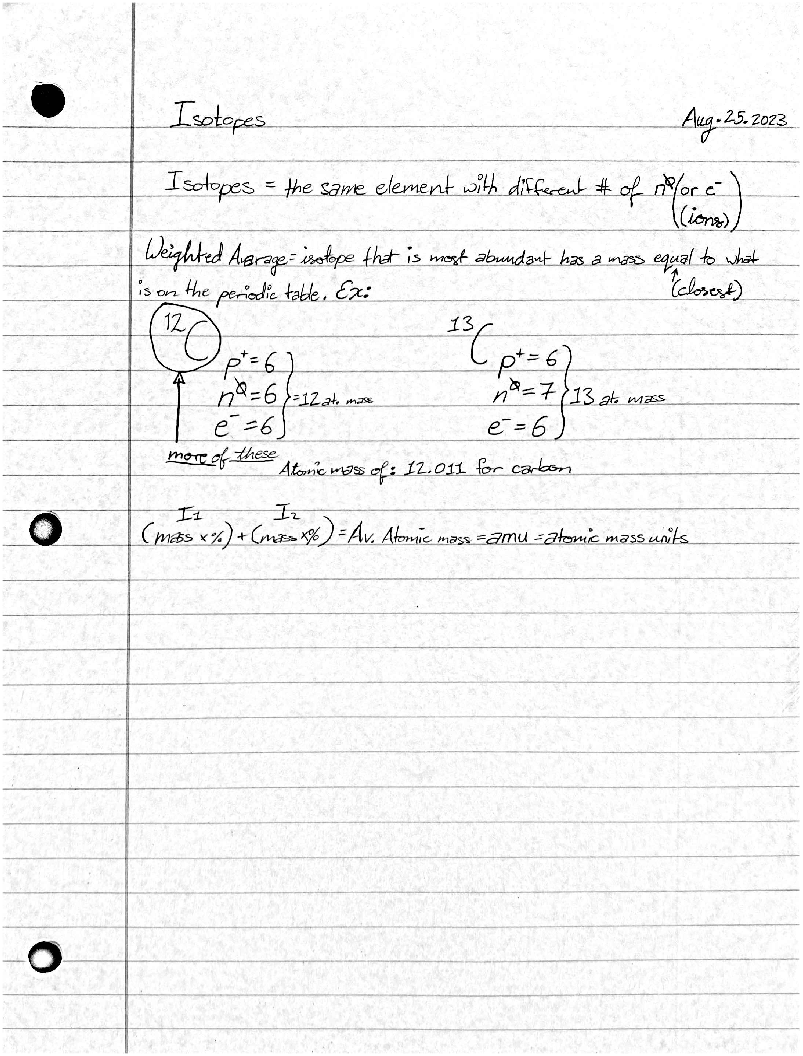 Isotopes Aug. 25. 2023
Isotopes = the same element with different # of n⁰/or e⁻
(ions)
Weighted Average = isotope that is most abundant has a mass equal to what
is on the periodic table. Ex: (closest)
12 C 13 C
p⁺ = 6 p⁺ = 6
n⁰ = 6 = 12 at. mass n⁰ = 7 13 at. mass
e⁻ = 6 e⁻ = 6
more of these
Atomic mass of: 12.011 for carbon
I1 I2
(mass x %) + (mass x %) = Av. Atomic mass = amu = atomic mass units